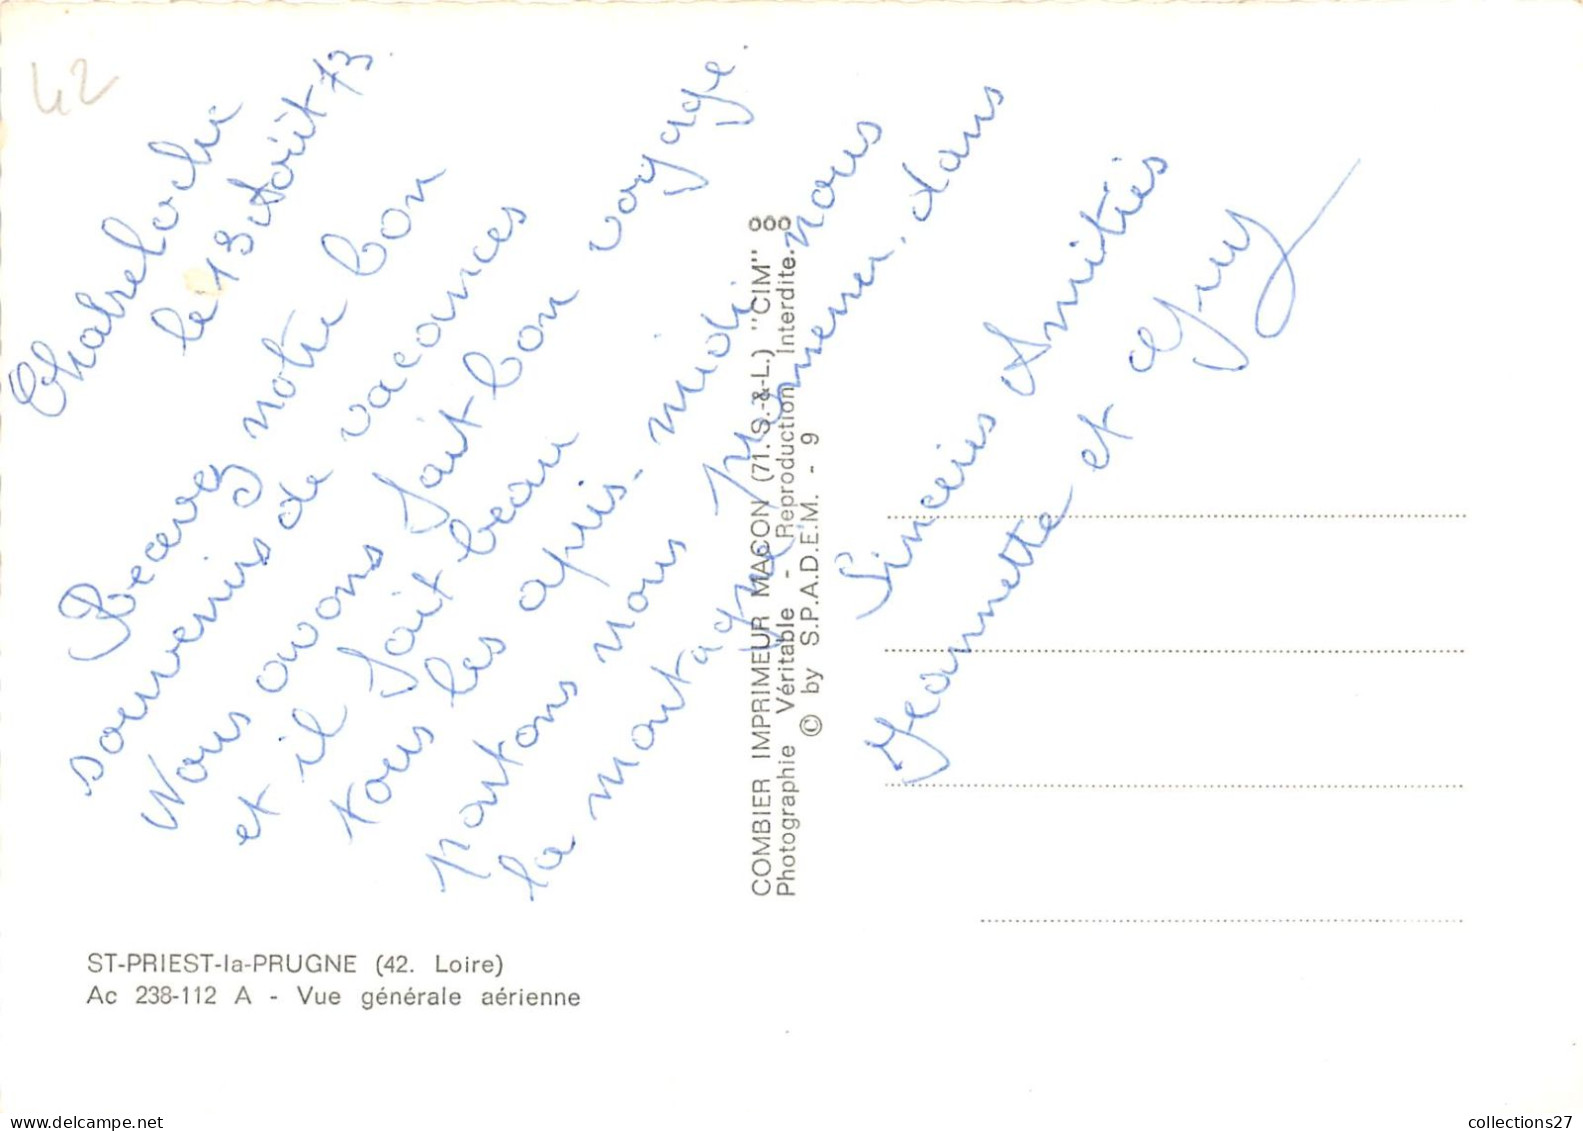 42
Chabreloche
le 13 Août 73.
Recevez notre bon
souvenirs de vacances
Nous avons fait bon voyage.
et il fait beau
tous les après-midi nous
partons nous promener dans
la montagne.
Sincères Amitiés
Jeannette et Guy
COMBIER IMPRIMEUR MACON (71. S.-&-L.) "CIM"
Photographie Véritable - Reproduction Interdite.
© by S.P.A.D.E.M. - 9
ST-PRIEST-la-PRUGNE (42. Loire)
Ac 238-112 A - Vue générale aérienne
collections27